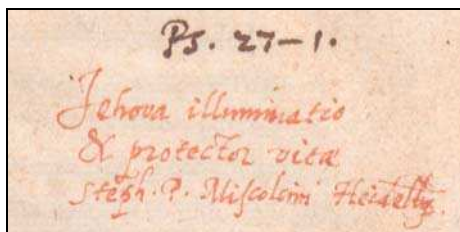 Ps. 27-1.
Jehova illuminatio
& protector vitæ
Steph. P. Miscolcini Heidelbg.